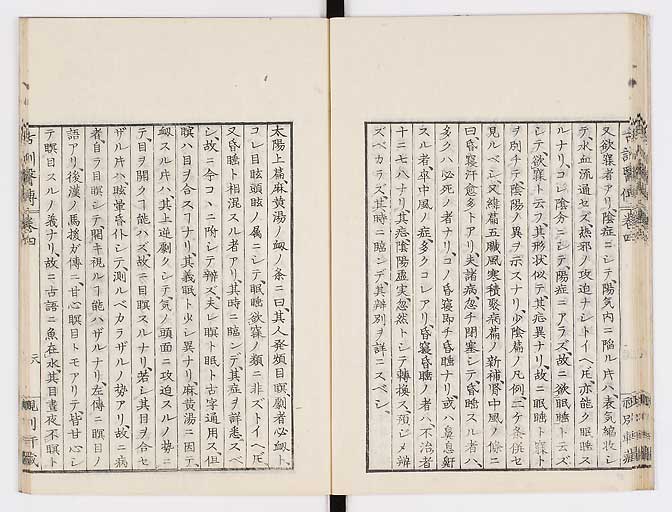 又欲寐者アリ、陰症ニシテ陽気内ニ陥ル片ハ、表気縮收シ
テ、水血流通セズ、熱邪ノ攻迫ナシトイヘ𪜈、亦能ク眠睡ス
ルナリ、コレ陰分ニシテ陽症ニアラズ、故ニ欲眠睡ト云ズ
シテ、欲寐ト云フ、其形状似テ、其症異ナリ、故ニ眠睡ト寐ト
ヲ別チテ、陰陽ノ異ヲ示スナリ、少陰篇ノ凡例三ケ條併セ
見ルベシ、又緯篇五臓風寒積聚病篇ノ新補腎中風ノ條ニ
曰昏寝汗愈多トアリ、夫諸病、忽チ閉塞シテ昏睡スル者ハ、
多クハ必死ノ者ナリ、コノ昏寝即チ昏睡ナリ、或ハ鼻息鼾
スル者、卒中風ノ症、多クコレアリ、昏寝昏睡ノ者ハ、不治者
十ニ七八ナリ、其症陰陽虚実、忽然トシテ轉換ス、預ジメ辨
ズベカラズ、其時ニ臨シデ、其辨別ヲ詳ニスベシ、
太陽上篇麻黄湯ノ衂ノ条ニ曰、其人発煩目瞑、劇者必衂ト、
コレ目眩頭眩ノ属ニシテ、眠睡欲寐ノ類ニ非ズトイヘ𪜈
又昏睡ト相混スル者アリ、其時ニ臨シデ、其症ヲ詳悉スベ
シ、故ニ今コヽニ附シテ辨ズ、夫レ瞑ト眠ト古字通用ス、但
瞑ハ目ヲ合スヿナリ、其義眠ト少シ異ナリ、麻黄湯ニ因テ、
衂スル片ハ、其上逆劇クシテ、気ノ頭面ニ攻迫スルノ勢ニ
テ、目ヲ開クヿ能ハズ、故ニ目瞑スルナリ、若シ其目ヲ合セ
ザル片ハ、眩暈昏仆シテ、測ルベカラザルノ勢アリ、故ニ病
者、自ラ目瞑シテ開キ視ルヿ能ハザルナリ、左傳ニ瞑目ノ
語アリ、後漢ノ馬援ガ傳ニ、甘心瞑目トモアリテ、皆甘心シ
テ瞑目スルノ義ナリ、故ニ古語ニ魚在水其目晝夜不瞑ト